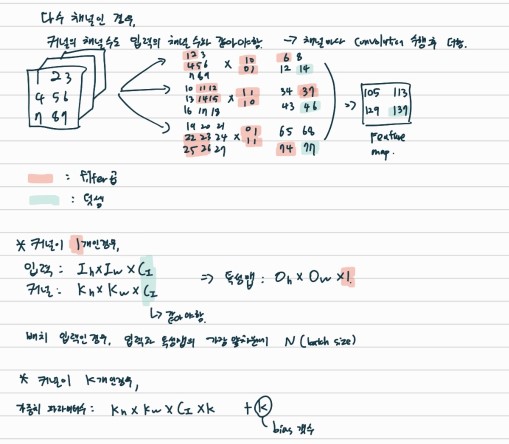 다수 채널인 경우,
커널의 채널 수도 입력의 채널 수와 같아야함. → 채널마다 Convolution 수행 후 더함.
1 2 3
4 5 6
7 8 9
1 2 3
4 5 6 × 1 0
7 8 9 0 1
6 8
12 14
10 11 12
13 14 15 × 1 1
16 17 18 1 0
34 37
43 46
19 20 21
22 23 24 × 0 1
25 26 27 1 1
65 68
74 77
⇒ 105 113
129 137
feature
map.
: filter곱
: 덧셈
* 커널이 1개인경우,
입력 : Ih×Iw×CI
커널 : Kh×Kw×CI
⇒ 특성맵 : Oh×Ow×1.
↳ 같아야함.
배치 입력인경우, 입력과 특성맵의 가장 앞차원에 N (batch size)
* 커널이 K개인경우,
가중치 파라미터수 : Kh×Kw×CI×K + K
bias 갯수